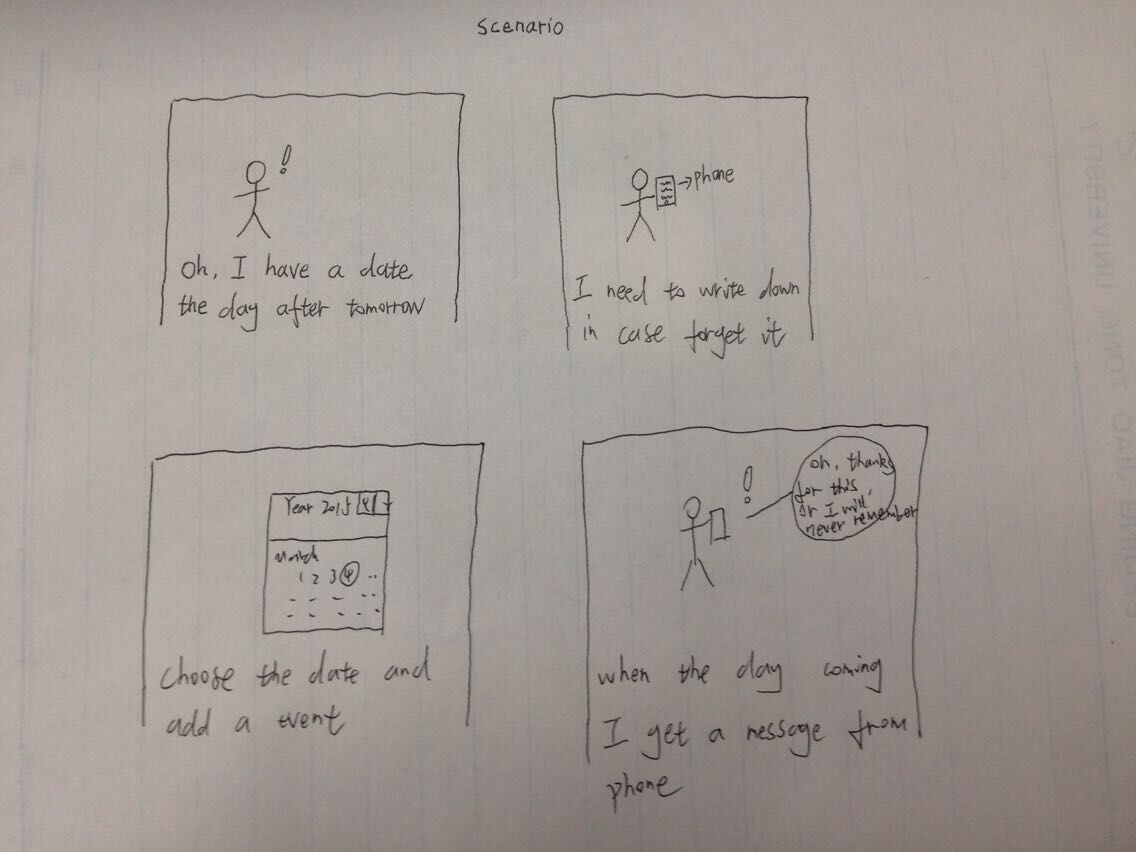 Scenario
!
oh, I have a date
the day after tomorrow
→phone
I need to write down
in case forget it
Year 2015
March
1 2 3 4 ..
choose the date and
add a event
!
oh, thanks
for this
or I will
never remember
when the day coming
I get a message from
phone
UNIVERSITY
TONG
JIAO